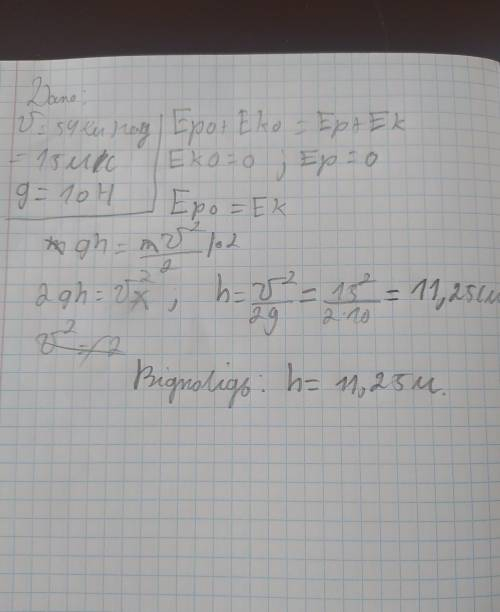 Дано:
V = 54 км/год
= 15 м/с
g = 10 Н
Epo + Eko = Ep + Ek
Eko = 0 ; Ep = 0
Epo = Ek
mgh = mV²/2 |·2
2gh = V² ; h = V²/2g = 15²/2·10 = 11,25 м
Відповідь: h = 11,25 м.